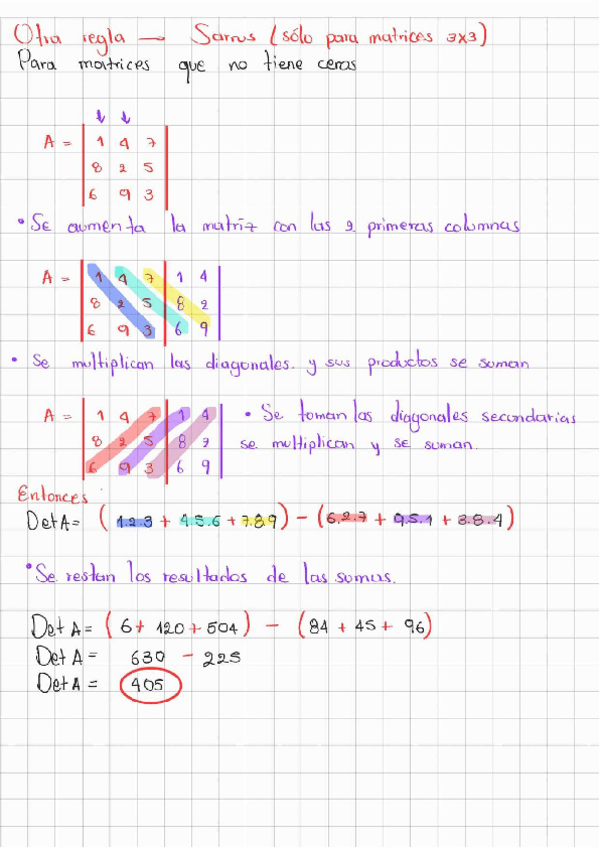 Otra regla — Sarrus (sólo para matrices 3x3)
Para matrices que no tiene ceros
↓ ↓
A = | 1 4 7 |
| 8 2 5 |
| 6 9 3 |
• Se aumenta la matriz con las 2 primeras columnas
A = | 1 4 7 | 1 4 |
| 8 2 5 | 8 2 |
| 6 9 3 | 6 9 |
• Se multiplican las diagonales. y sus productos se suman
A = | 1 4 7 | 1 4 | • Se toman las diagonales secundarias
| 8 2 5 | 8 2 | se multiplican y se suman.
| 6 9 3 | 6 9 |
Entonces
Det A = (1.2.3 + 4.5.6 + 7.8.9) - (6.2.7 + 9.5.1 + 3.8.4)
• Se restan los resultados de las sumas.
Det A = (6 + 120 + 504) - (84 + 45 + 96)
Det A = 630 - 225
Det A = 405